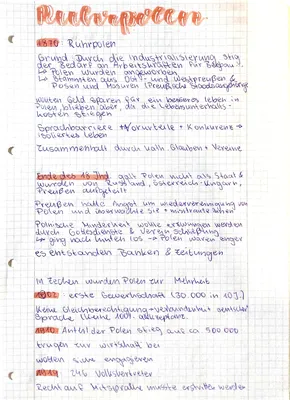 Ruhrpolen
1870 Ruhrpolen
Grund: Durch die Industrialisierung stieg
der Bedarf an Arbeitskräften für Bergbau
↳ Polen wurden angeworben
↳ Stammten aus Ost- und Westpreußen &
Posen und Masuren (Preußische Staatsangehörige)
wollten Geld sparen für ein besseres Leben in
Polen blieben aber, da die Lebensunterhalts-
kosten stiegen
Sprachbarriere + Vorurteile + Konkurrenz →
isoliertes Leben
Zusammenhalt durch kath. Glauben + Vereine
Ende des 18 Jhd. galt Polen nicht als Staat &
wurden von Russland, Österreich-Ungarn,
Preußen aufgeteilt
Preußen hatte Angst um wiedervereinigung von
Polen und überwachte sie + misstraute ihnen
Polnische Minderheit wollte erzwungen werden
durch Gottesdienste & Verein
↳ ging nach hinten los → Polen waren enger
es entstanden Banken & Zeitungen
In Zechen wurden Polen zur Mehrheit
1902 erste Gewerkschaft (30.000 in 10J.)
Keine Gleichberechtigung + verbundenheit
Sprache
1910 Anzahl der Polen stieg auf ca. 500 000
trugen zur wirtschaft bei
wollten sich engagieren
1919 246 Volksvertreter
Recht auf Mitsprache musste erstritten werden